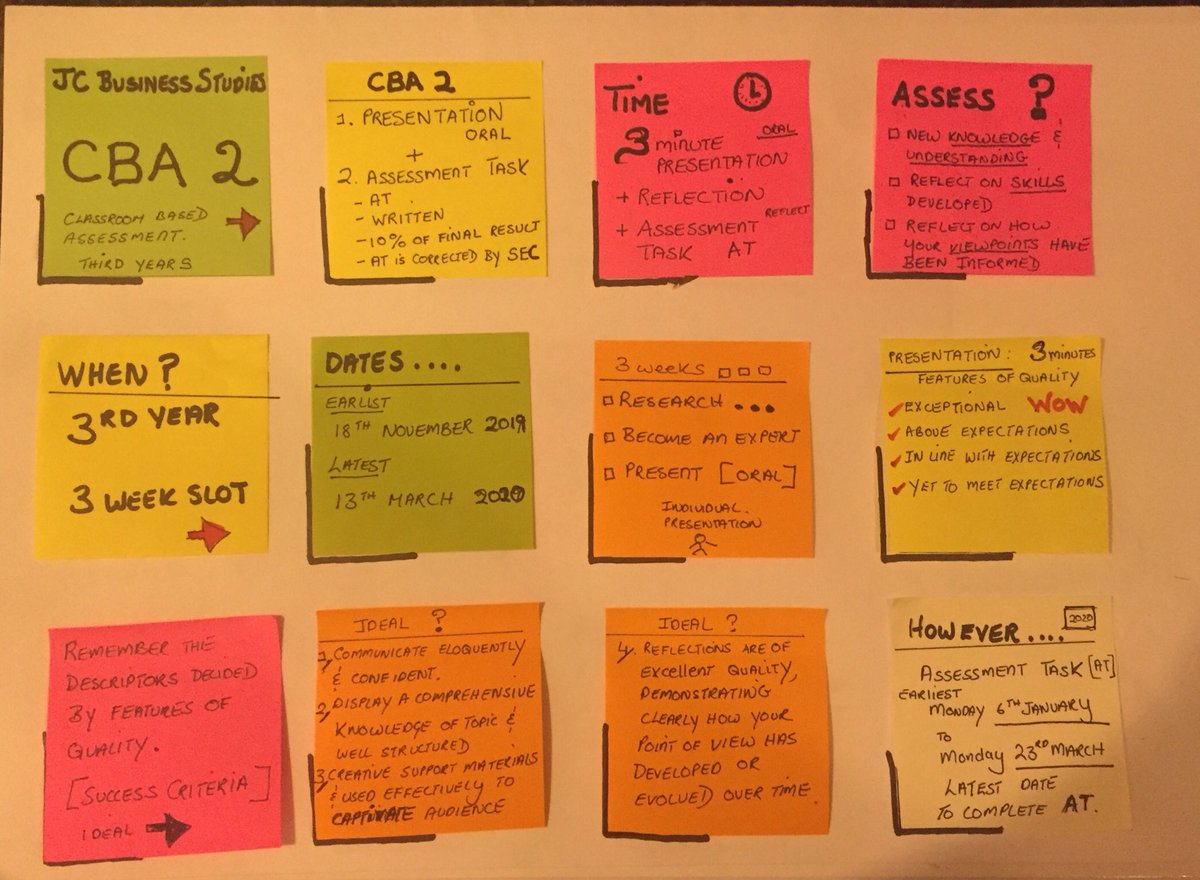 JC BUSINESS STUDIES
CBA 2
CLASSROOM BASED
ASSESSMENT.
THIRD YEARS
CBA 2
1. PRESENTATION
ORAL
+
2. ASSESSMENT TASK
- AT.
- WRITTEN
- 10% OF FINAL RESULT
- AT IS CORRECTED BY SEC
TIME
3 MINUTE ORAL
PRESENTATION
+ REFLECTION
+ ASSESSMENT REFLECT
TASK AT
ASSESS ?
NEW KNOWLEDGE &
UNDERSTANDING
REFLECT ON SKILLS
DEVELOPED
REFLECT ON HOW
YOUR VIEWPOINTS HAVE
BEEN INFORMED
WHEN?
3RD YEAR
3 WEEK SLOT
DATES....
EARLIST
18TH NOVEMBER 2019
LATEST
13TH MARCH 2020
3 WEEKS
RESEARCH ...
BECOME AN EXPERT
PRESENT [ORAL]
INDIVIDUAL
PRESENTATION
PRESENTATION: 3 MINUTES
FEATURES OF QUALITY
✓ EXCEPTIONAL WOW
✓ ABOVE EXPECTATIONS
✓ IN LINE WITH EXPECTATIONS
✓ YET TO MEET EXPECTATIONS
REMEMBER THE
DESCRIPTORS DECIDED
BY FEATURES OF
QUALITY.
[SUCCESS CRITERIA]
IDEAL
IDEAL ?
1, COMMUNICATE ELOQUENTLY
& CONFIDENT.
2, DISPLAY A COMPREHENSIVE
KNOWLEDGE OF TOPIC &
WELL STRUCTURED
3, CREATIVE SUPPORT MATERIALS
& USED EFFECTIVELY TO
CAPTIVATE AUDIENCE
IDEAL ?
4, REFLECTIONS ARE OF
EXCELLENT QUALITY,
DEMONSTRATING
CLEARLY HOW YOUR
POINT OF VIEW HAS
DEVELOPED OR
EVOLVED OVER TIME.
HOWEVER.... 2020
ASSESSMENT TASK [AT]
EARLIEST
MONDAY 6TH JANUARY
TO
MONDAY 23RD MARCH
LATEST DATE
TO COMPLETE AT.